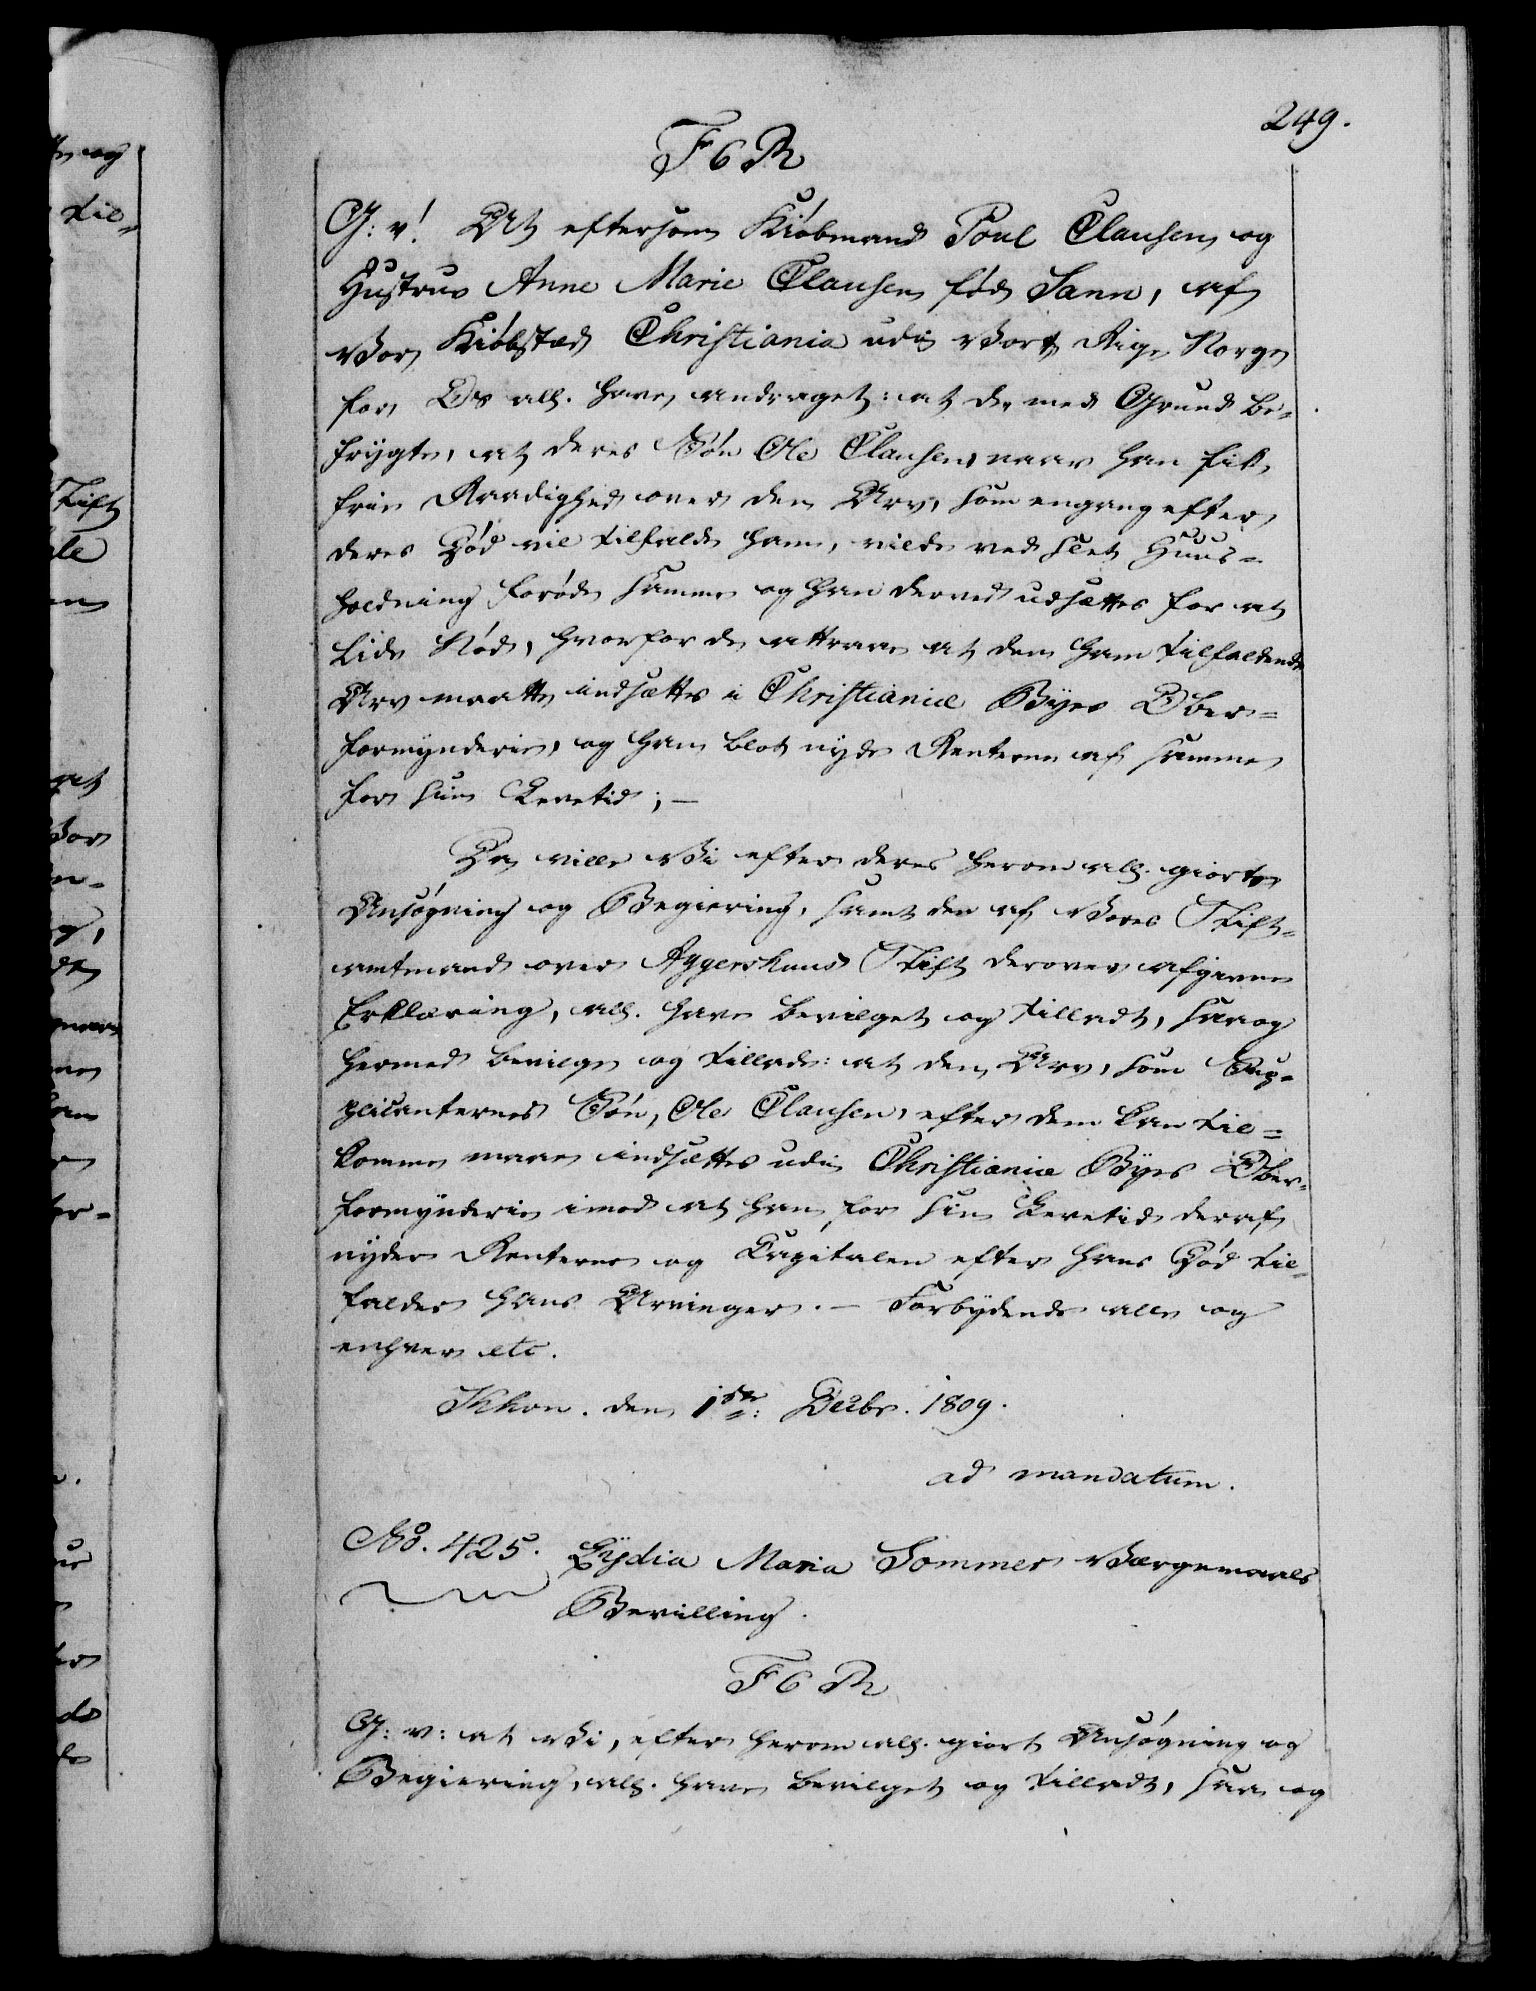 249.
F 6 R
G: v! At eftersom Kiøbmand Poul Clausen og
Hustrue Anne Marie Clausen fød Sann, af
Vor Kiøbstæd Christiania udi Vort Rige Norge
for Os all. have andraget: at de med Grund be-
frygte, at deres Søn Ole Clausen, naar han fik
frie Raadighed over den Arv, som engang efter
deres Død vil tilfalde ham, vilde ved slet Huus-
holdning forøde samme og han derved udsættes for at
lide Nød, hvorfor de attraae at den ham tilfaldende
Arv maatte indsættes i Christianiæ Byes Ober-
formynderie, og han blot nyde Renterne af samme
for sin Levetid; —
Da ville Vi efter deres herom all. giorte
Ansøgning og Begiering, samt den af Vores Stift-
amtmand over Aggershuus Stift derover afgivne
Erklæring, all. have bevilget og tilladt, saa og
hermed bevilge og tillade: at den Arv, som Sup-
plicanternes Søn, Ole Clausen, efter dem kan til-
komme maae indsættes udi Christianiæ Byes Ober-
formynderie imod at han for sin Levetid deraf
nyder Renterne og Capitalen efter hans Død til-
falder hans Arvinger. — Forbydende alle og
enhver etc.
Khvn. den 1ste: Decbr. 1809.
ad mandatum.
No. 425. Lydia Maria Sommer Værgemaals
Bevilling.
F 6 R
G: v: at Vi, efter herom all. giort Ansøgning og
Begiering, all. have bevilget og tilladt, saa og